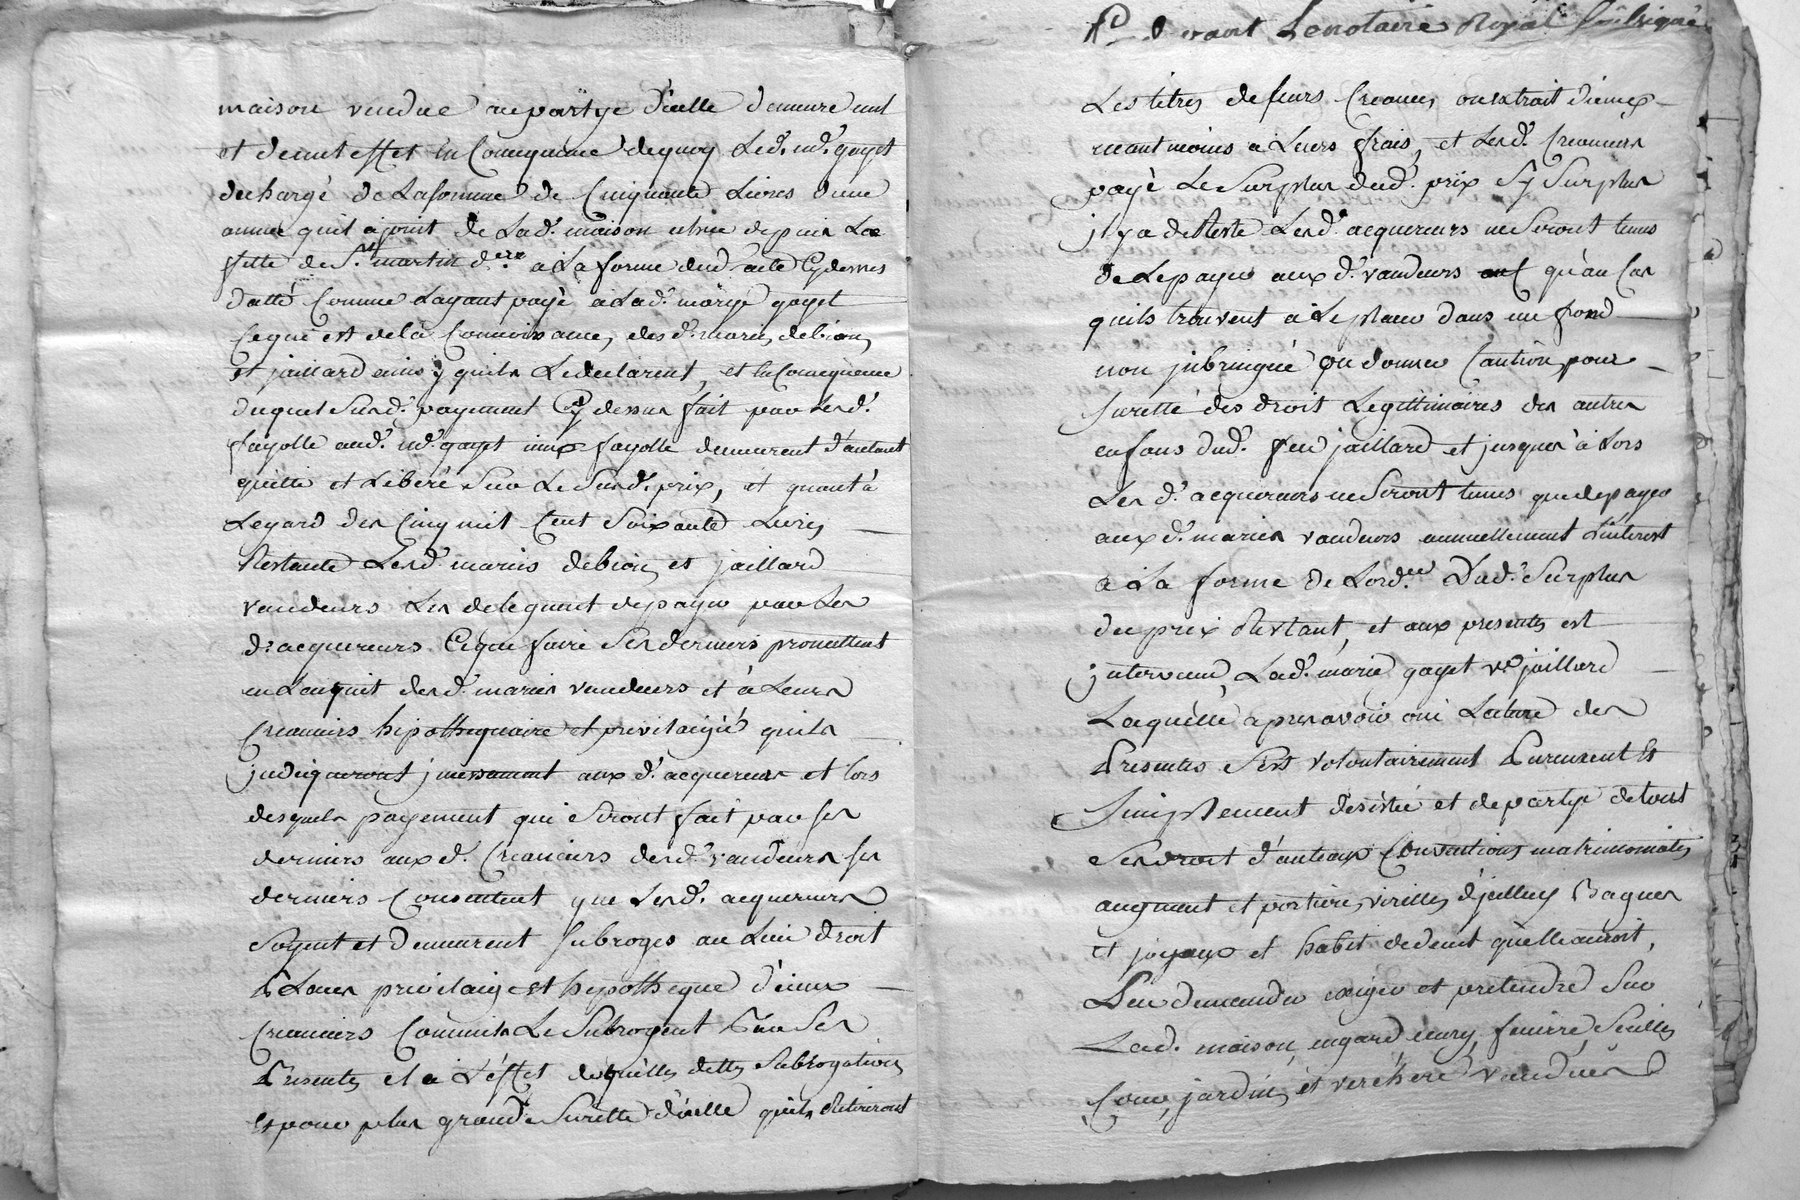 maison vendue au partye d'icelle demeure nul
et de nul effet en Consequence dequoy Led.t m.d gayet
dechargé de La somme de Cinquante Livres d'une
année quil a jouit de Lad. maison echue depuis La
fette de St martin d.ere a La forme dud. acte Cy dessus
datté Comme Layant payé a Lad. marye gayet
Ce qui est de la Connoissance, des d. mariés debion
et jaillard ainsy quils Le declarent, et en Consequence
duquel susd. payement Cy dessus fait par Lesd.
fayolle aud. m.d gayet iceux fayolle demeurent d'autant
quitte et Libéré sur Le susd. prix, et quant à
Legard des Cinq mil Cent soixante Livres
Restante Lesd. mariés debion et jaillard
vandeurs Les deleguent de payer par Les
d. acquereurs Ce que faire Ses derniers promettent
en Lacquit desd. mariés vandeurs et à Leurs
Creanciers hipothequaire et privilaigié quils
judiqueront jncessament aux d. acquereurs et lors
desquels payement qui seront fait par ses
derniers aux d. Creanciers desd. vandeurs ses
derniers Consentent que Lesd. acquereurs
soyent et demeurent subrogés au Lieu droit
place privilaige et hypotheque d'iceux
Creanciers Comme ils Le subrogent par Ses
Presentes et a L'effet desquelles dittes subrogations
et pour plus grande surette d'icelle quils Retireront
Pd. devant Le notaire Royal soussigné
Les titres de leurs Creances, ou extrait d'iceux
neantmoins a Leurs frais, et Lesd. Creanciers
payé Le surplus dud. prix sy surplus
jl y a de Reste Lesd. acquereurs ne seront tenus
de Le payer aux d. vandeurs qu'au Cas
quils trouvent a Le placer dans un fond
non jnbringué ou donner Caution pour
surette des droit Legittimaires des autres
enfans dud. feu jaillard et jusques à Lors
Les d. acquereurs ne seront tenus que de payer
aux d. mariés vandeurs annuellement L'interest
a La forme de Lord.ce Dud. surplus
du prix Restant, et aux presentes est
jntervenue Lad. marie gayet v.e jaillard
Laquelle apres avoir oui Lecture des
Presentes s'est volontairement Purement et
simplement desistée et departye de tous
ses droit d'anteaux Conventions matrimoniales
augment et portion, virilles, d'juelluy Bagues
et joyaux et habit de deuil qu'elle auroit,
peu demander exiger et pretendre sur
Lad. maison, engard ecury, feniere, seulles
Cour, jardin, et verchere vandues